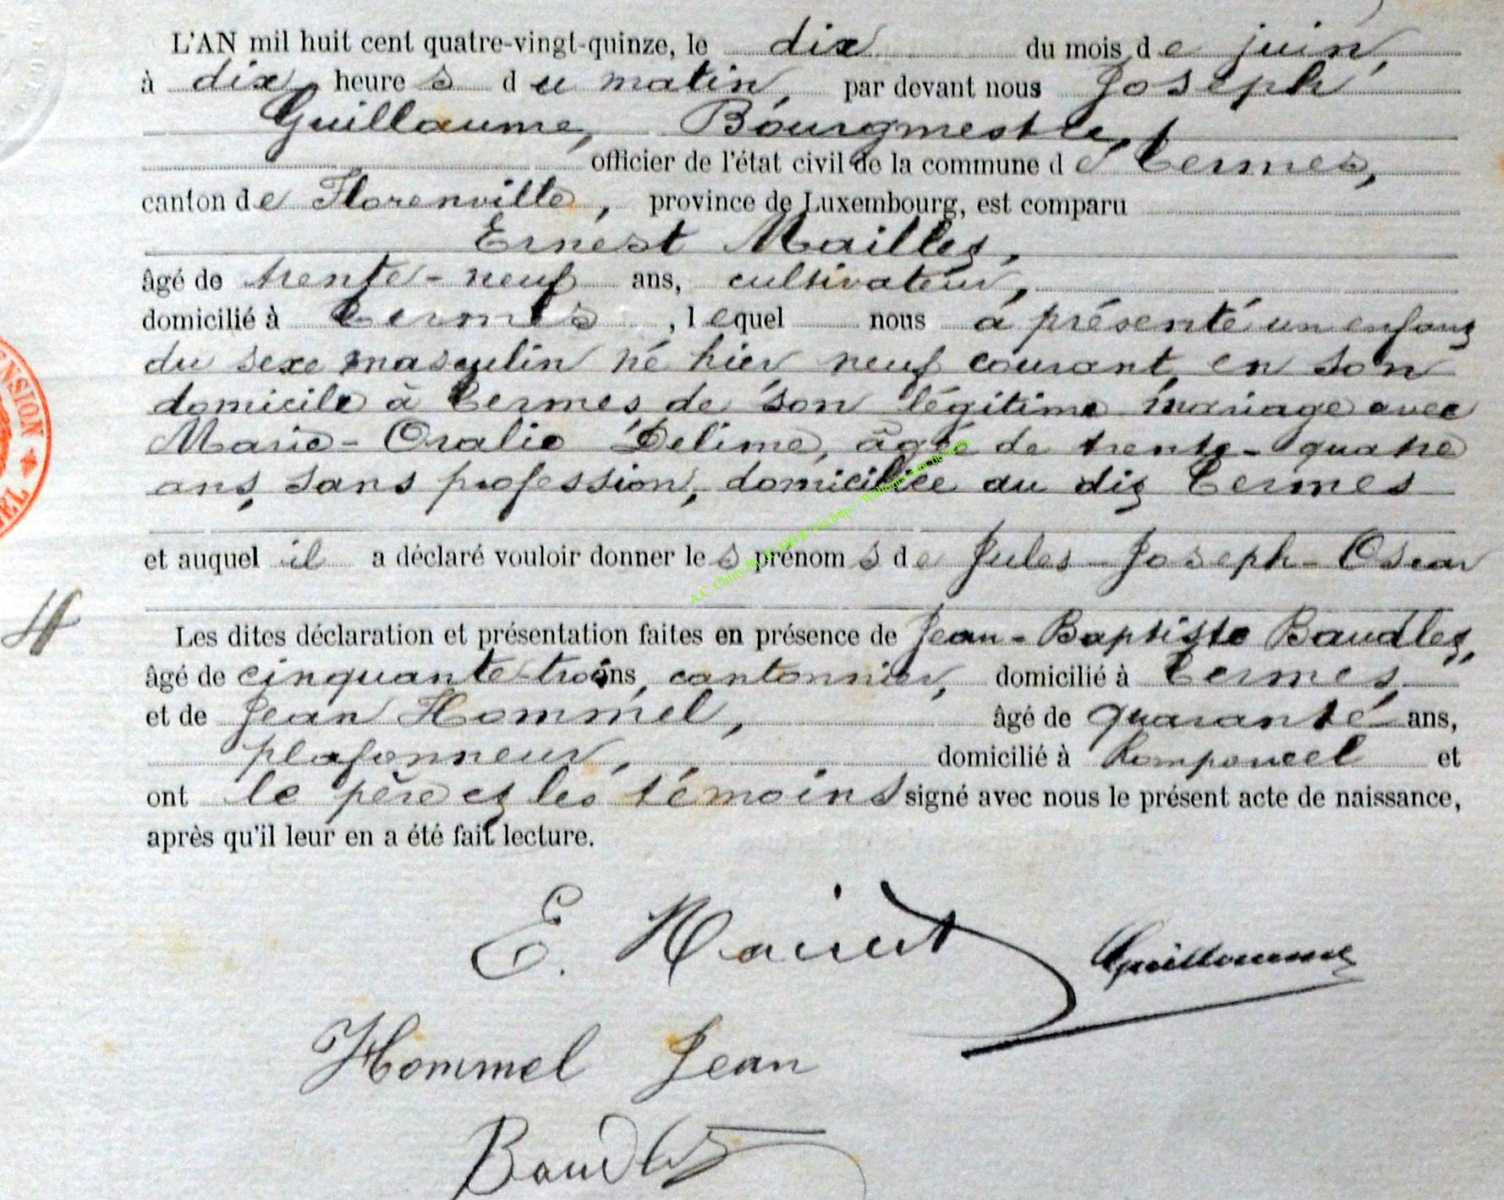 L'AN mil huit cent quatre-vingt-quinze, le dix du mois de juin,
à dix heures du matin, par devant nous Joseph
Guillaume, Bourgmestre,
officier de l'état civil de la commune de Termes,
canton de Florenville, province de Luxembourg, est comparu
Ernest Maillet,
âgé de trente-neuf ans, cultivateur,
domicilié à Termes, lequel nous a présenté un enfant
du sexe masculin né hier neuf courant, en son
domicile à Termes, de son légitime mariage avec
Marie-Oralie Delime, âgée de trente-quatre
ans, sans profession, domiciliée au dit Termes
et auquel il a déclaré vouloir donner les prénoms de Jules-Joseph-Oscar
Les dites déclaration et présentation faites en présence de Jean-Baptiste Baudlet,
âgé de cinquante-trois ans, cantonnier, domicilié à Termes,
et de Jean Hommel, âgé de quarante ans,
plafonneur, domicilié à Romponcel et
ont le père et les témoins signé avec nous le présent acte de naissance,
après qu'il leur en a été fait lecture.
E. Guillaume
Hommel Jean
Baudlet
NSION
EL